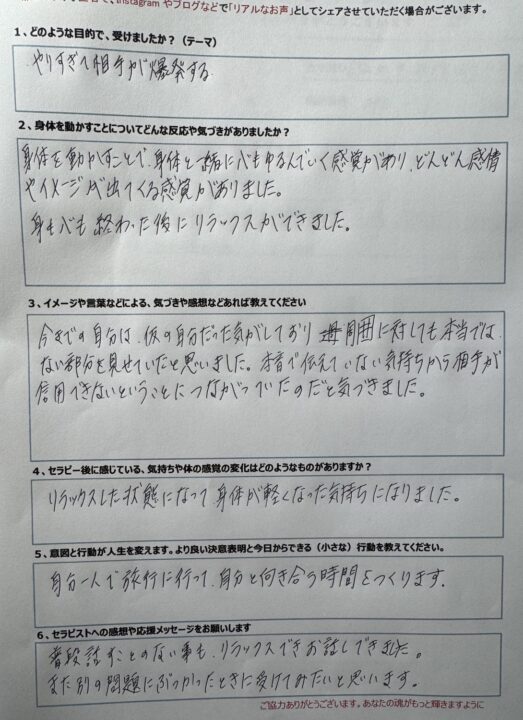 、Instagram やブログなどで「リアルなお声」としてシェアさせていただく場合がございます。
1、どのような目的で、受けましたか?(テーマ)
やりすぎて相手が爆発する
2、身体を動かすことについてどんな反応や気づきがありましたか?
身体を動かすことで、身体と一緒に心もゆるんでいく感覚があり、どんどん感情
やイメージが出てくる感覚がありました。
身も心も終わった後にリラックスができました。
3、イメージや言葉などによる、気づきや感想などあれば教えてください
今までの自分は、仮の自分だった気がしており 周囲に対しても本当では
ない部分を見せていたと思いました。本音で伝えていない気持ちから相手が
信用できないということにつながっていたのだと気づきました。
4、セラピー後に感じている、気持ちや体の感覚の変化はどのようなものがありますか?
リラックスした状態になって身体が軽くなった気持ちになりました。
5、意図と行動が人生を変えます。より良い決意表明と今日からできる(小さな)行動を教えてください。
自分一人で旅行に行って、自分と向き合う時間をつくります。
6、セラピストへの感想や応援メッセージをお願いします
普段話すことのない事も、リラックスでき お話しできました。
また別の問題にぶつかったときに受けてみたいと思います。
ご協力ありがとうございます。あなたの魂がもっと輝きますように